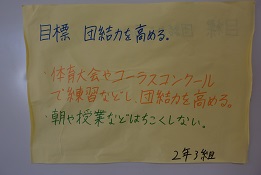 目標 団結力を高める。
・体育大会やコーラスコンクール
で練習などし、団結力を高める。
・朝や授業などはちこくしない。
2年3組